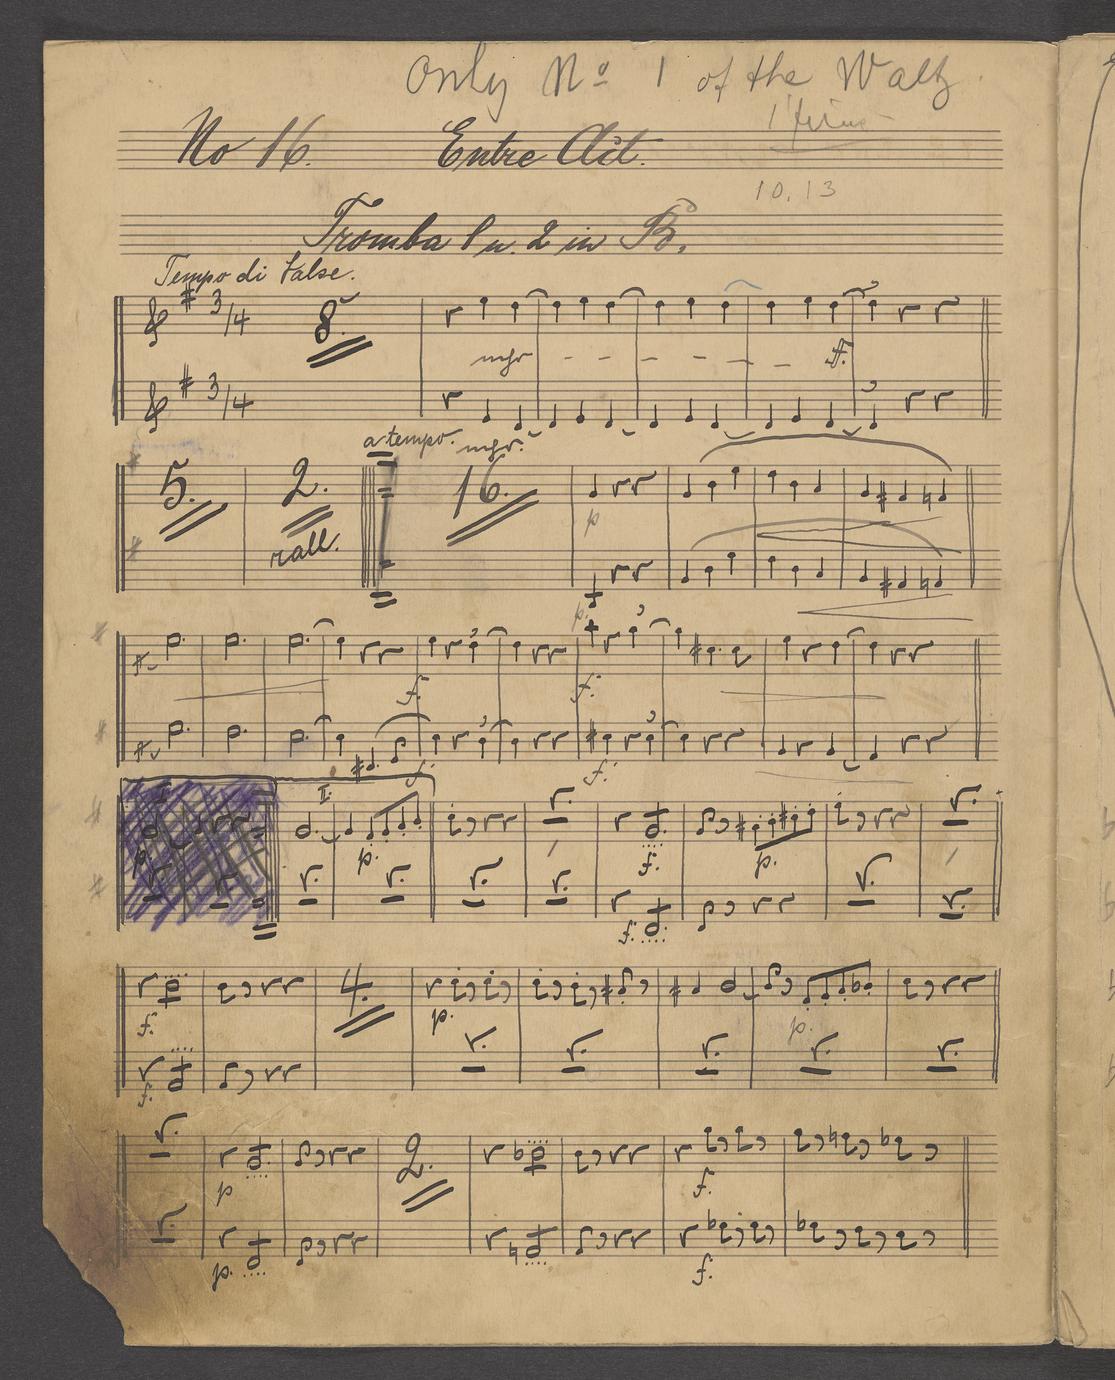 Only No 1 of the Waltz
No 16. Entre Act.
10.13
Tromba 1 u. 2 in B.
Tempo di Valse.
3/4 8.
3/4
a tempo.
5. 2. 16.
rall.
p
p.
f. f.
f. f.
I. II.
p. p. f. p.
f.
4.
f. p. p.
f.
2.
p f.
p. f.